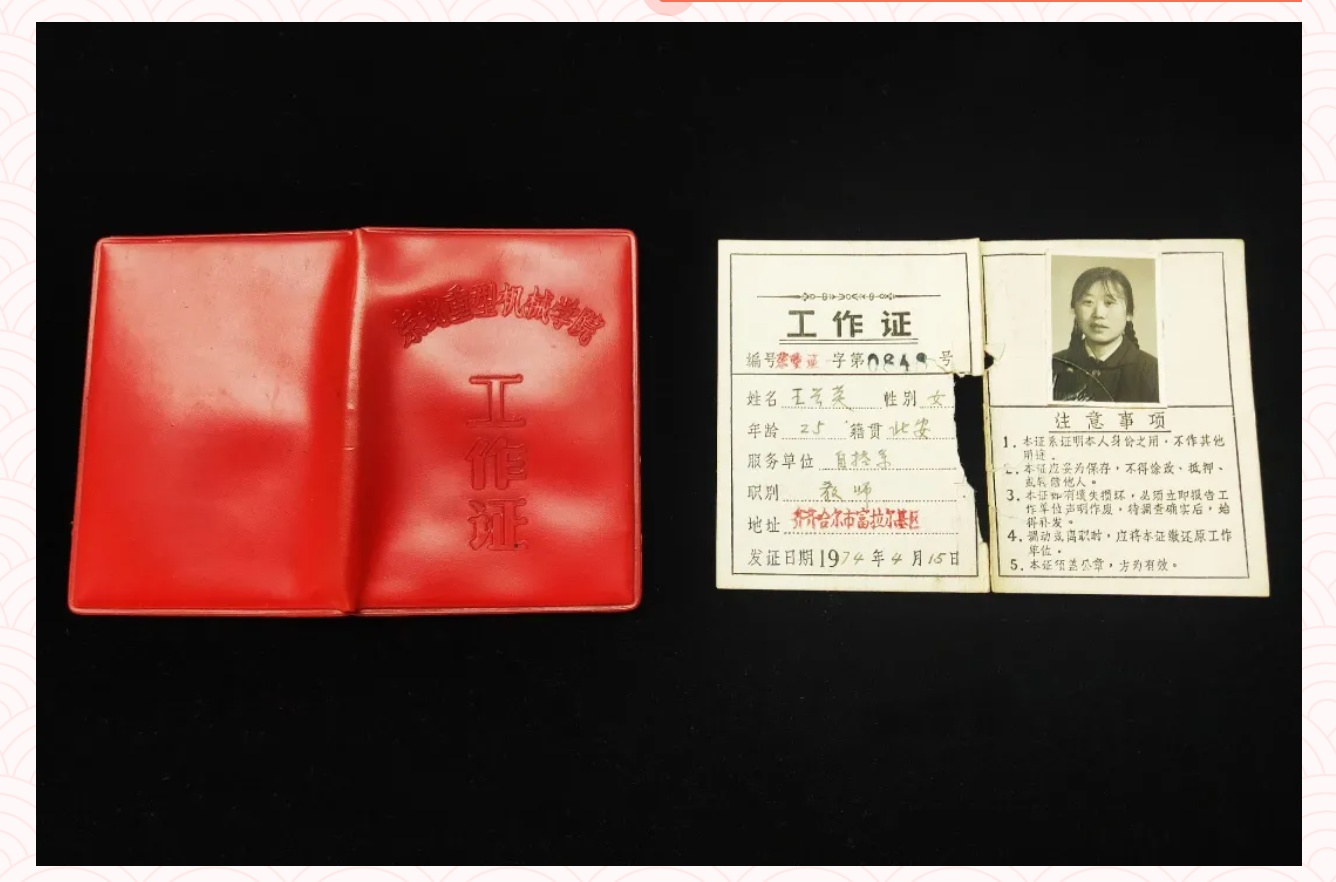 东北重型机械学院
工作证
工作证
编号东重证字第0848号
姓名 王兰英 性别 女
年龄 25 籍贯 北安
服务单位 自控系
职别 教师
地址 齐齐哈尔市富拉尔基区
发证日期1974年4月15日
注意事项
1.本证系证明本人身份之用，不作其他
用途。
2.本证应妥为保存，不得涂改、抵押、
或转借他人。
3.本证如有遗失损坏，必须立即报告工
作单位声明作废，待调查确实后，始
得补发。
4.调动或离职时，应将本证缴还原工作
单位。
5.本证须盖公章，方为有效。